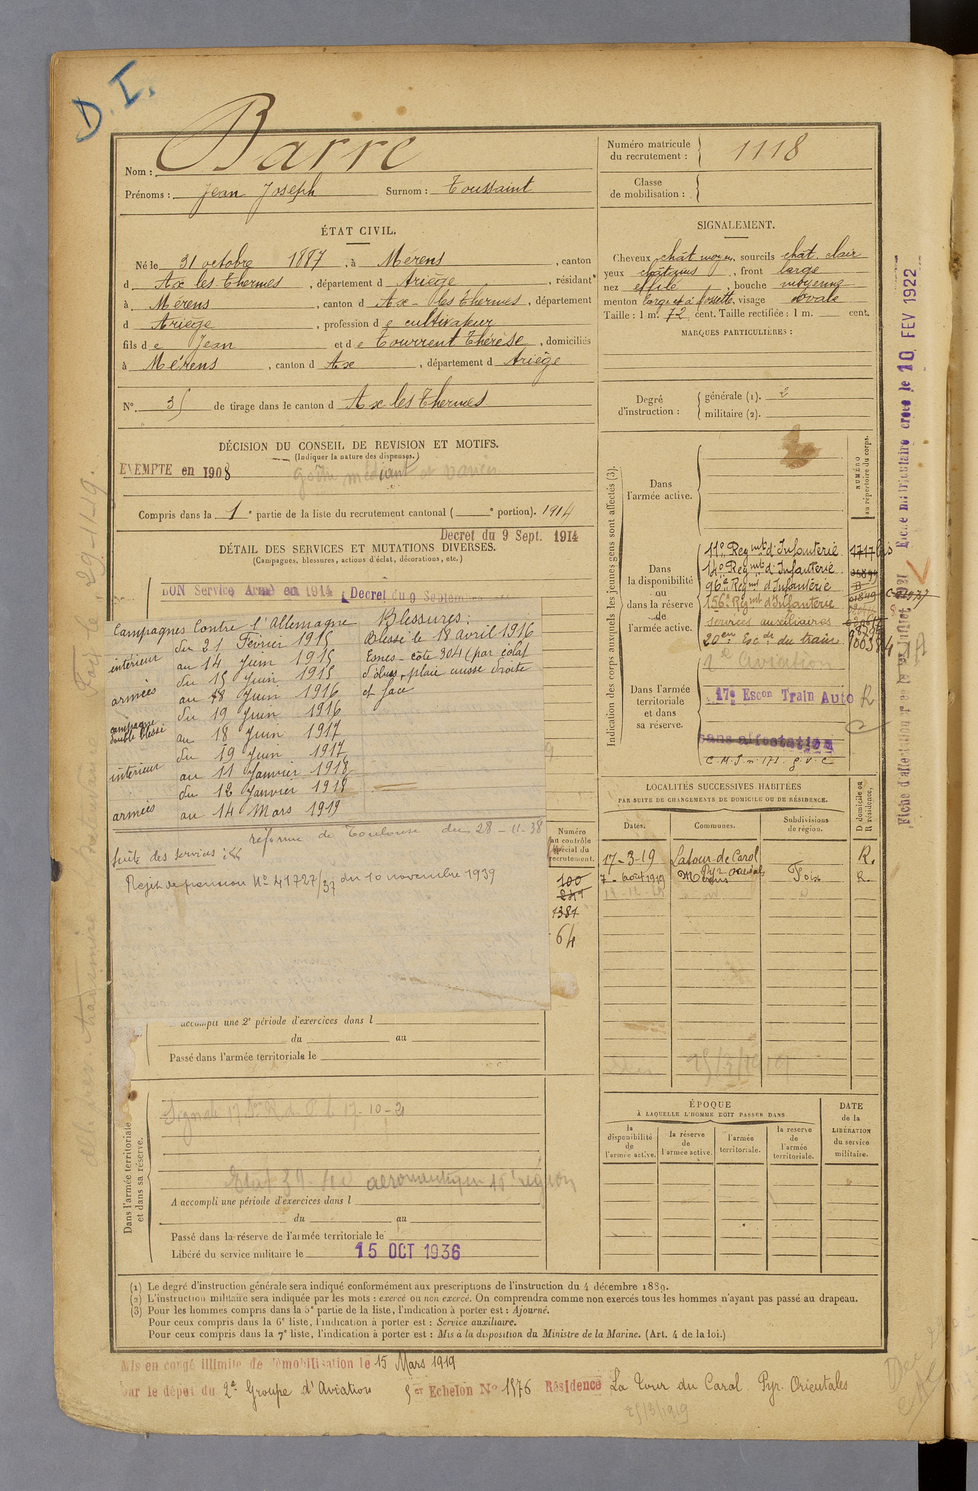 D. I.
Nom : Barre
Prénoms : Jean Joseph Surnom : Toussaint
ÉTAT CIVIL.
Né le 31 octobre 1887, à Mérens, canton
d Ax les Thermes, département d Ariège, résidant
à Mérens, canton d Ax-les Thermes, département
d Ariège, profession d e cultivateur
fils d e Jean et d e Tourrent Thérèse, domiciliés
à Mérens, canton d Ax, département d Ariège
N° 35 de tirage dans le canton d Ax les Thermes
DÉCISION DU CONSEIL DE REVISION ET MOTIFS.
(Indiquer la nature des dispenses.)
EXEMPTE en 1908
Compris dans la 1e partie de la liste du recrutement cantonal ( e portion). 1914
Decret du 9 Sept. 1914
DÉTAIL DES SERVICES ET MUTATIONS DIVERSES.
(Campagnes, blessures, actions d'éclat, décorations, etc.)
BON Service Armé en 1914 Decret du 9 Septembre
Campagnes Contre l'Allemagne
intérieur du 21 Février 1915
au 14 Juin 1915
armées du 15 Juin 1915
au 18 Juin 1916
campagne double blessé du 19 Juin 1916
au 18 Juin 1917
intérieur du 19 Juin 1917
au 11 Janvier 1918
armées du 12 Janvier 1918
au 14 Mars 1919
Blessures :
Blessé le 18 avril 1916
Esnes - côte 304 (par éclat
d'obus, plaie cuisse droite
et face
réforme de Toulouse du 28-11-38
Suite des services :
Rejet de pension N° 41727/37 du 10 novembre 1939
A accompli une 2e période d'exercices dans l
du au
Passé dans l'armée territoriale le
Dans l'armée territoriale et dans sa réserve.
17-10-21
aéronautique 15e région
A accompli une période d'exercices dans l
du au
Passé dans la réserve de l'armée territoriale le
Libéré du service militaire le 15 OCT 1936
Numéro matricule du recrutement : 1118
Classe de mobilisation :
SIGNALEMENT.
Cheveux chât moyen, sourcils chat. clair
yeux châtains, front large
nez effilé, bouche moyenne
menton large et à fossette, visage ovale
Taille : 1 m. 72 cent. Taille rectifiée : 1 m. cent.
MARQUES PARTICULIÈRES :
Degré d'instruction : générale (1). 2
militaire (2).
Indication des corps auxquels les jeunes gens sont affectés (3).
NUMÉRO au répertoire du corps.
Dans l'armée active.
Dans la disponibilité ou dans la réserve de l'armée active.
11e Regmt d'Infanterie
14e Regmt d'Infanterie
96e Regmt d'Infanterie
156e Regmt d'Infanterie
services auxiliaires
20ème Esc de du train
2e Aviation
Dans l'armée territoriale et dans sa réserve.
17e Escon Train Auto R
Sans affectation
LOCALITÉS SUCCESSIVES HABITÉES
PAR SUITE DE CHANGEMENTS DE DOMICILE OU DE RÉSIDENCE.
D domicile ou R résidence.
Numéro au contrôle spécial du recrutement.
Dates. Communes. Subdivisions de région.
17-3-19 Latour-de Carol Pyr. Orientales R.
7-août 1919 Mérens Foix R.
100
1381
64
ÉPOQUE
À LAQUELLE L'HOMME DOIT PASSER DANS
la disponibilité de l'armée active.
la réserve de l'armée active.
l'armée territoriale.
la reserve de l'armée territoriale.
DATE de la LIBÉRATION du service militaire.
(1) Le degré d'instruction générale sera indiqué conformément aux prescriptions de l'instruction du 4 décembre 1889.
(2) L'instruction militaire sera indiquée par les mots : exercé ou non exercé. On comprendra comme non exercés tous les hommes n'ayant pas passé au drapeau.
(3) Pour les hommes compris dans la 5e partie de la liste, l'indication à porter est : Ajourné.
Pour ceux compris dans la 6e liste, l'indication à porter est : Service auxiliaire.
Pour ceux compris dans la 7e liste, l'indication à porter est : Mis à la disposition du Ministre de la Marine. (Art. 4 de la loi.)
Mis en congé illimité de démobilisation le 15 Mars 1919
par le dépôt du 2e Groupe d'Aviation 5er Echelon N° 1576 Résidence La Tour du Carol Pyr. Orientales
25/3/1919
Fiche matriculaire créée le 10 FEV 1922